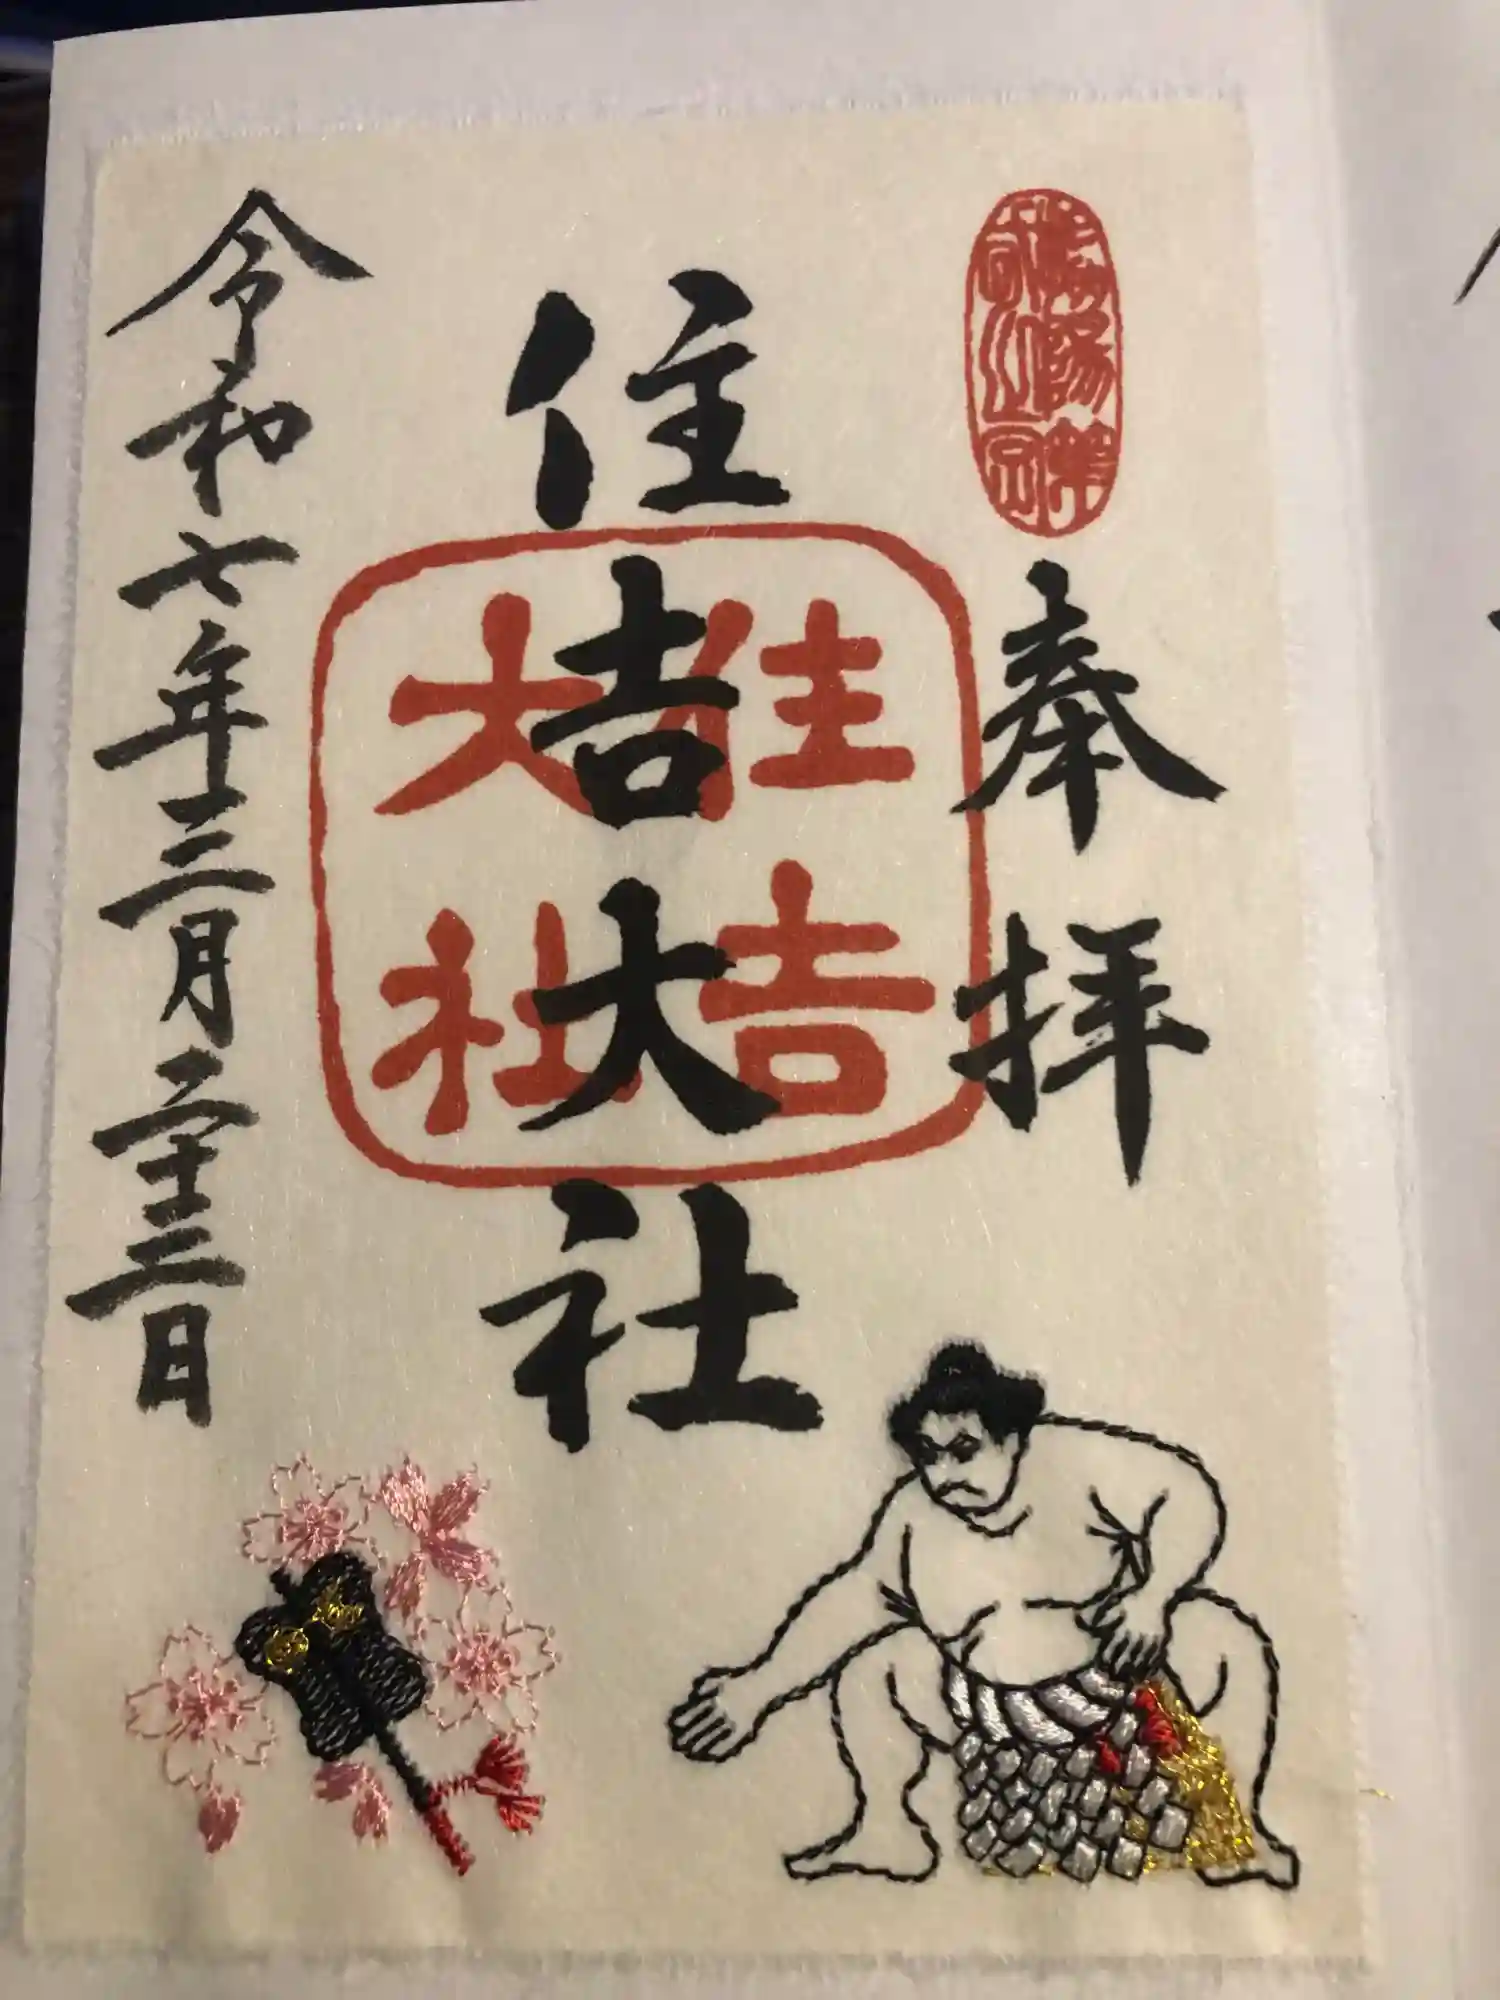 奉拝
住吉大社
住吉大社
令和七年三月二十三日